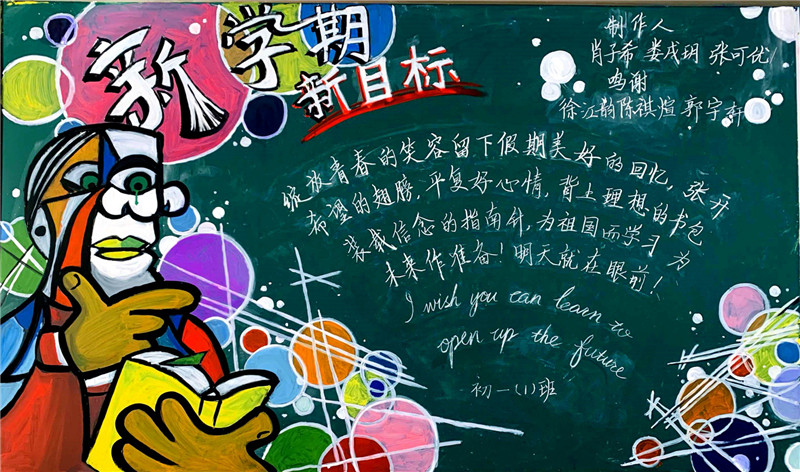 新学期
新目标
制作人
肖子希 娄戌玥 张可优
鸣谢
徐江韵 陈祺煊 郭宇轩
绽放青春的笑容留下假期美好的回忆,张开
希望的翅膀,平复好心情,背上理想的书包
装载信念的指南针,为祖国而学习 为
未来作准备!明天就在眼前!
I wish you can learn to
open up the future
初一(1)班